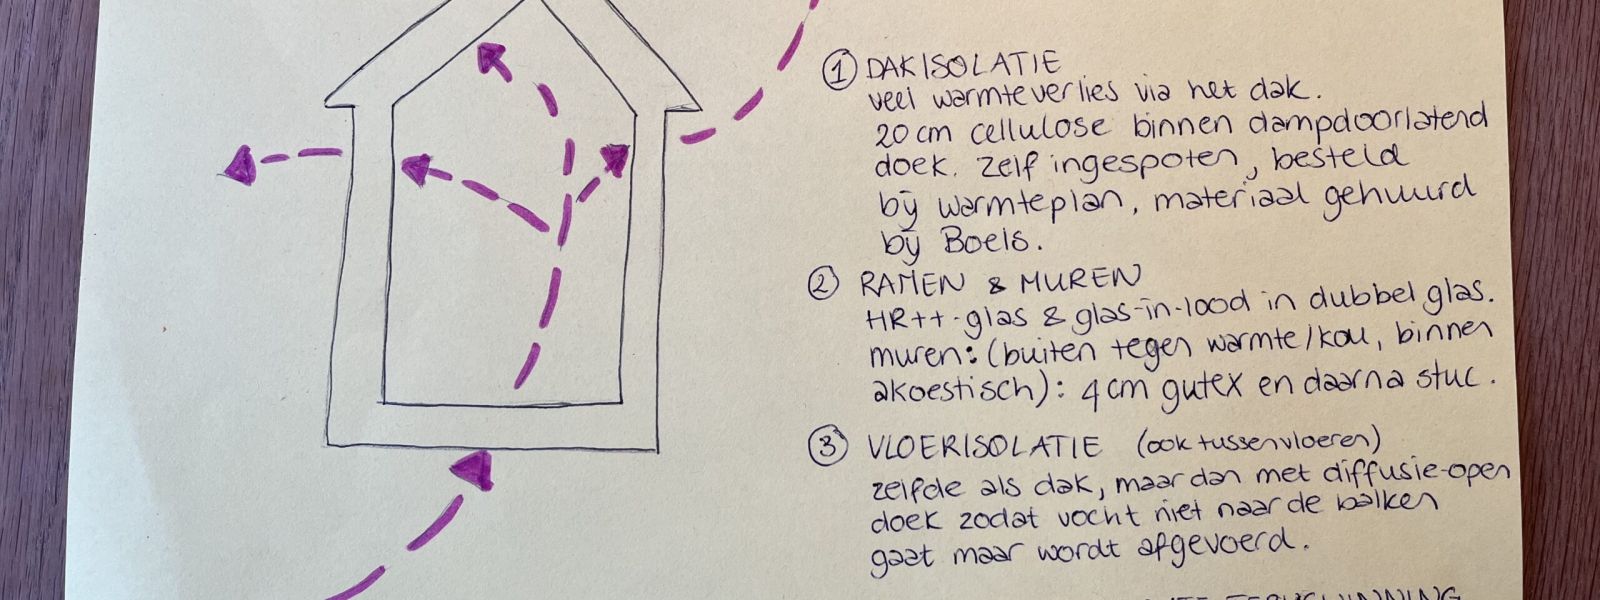 ① DAKISOLATIE
veel warmteverlies via het dak.
20 cm cellulose binnen dampdoorlatend
doek. Zelf ingespoten, besteld
bij warmteplan, materiaal gehuurd
bij Boels.
② RAMEN & MUREN
HR++-glas & glas-in-lood in dubbel glas.
muren: (buiten tegen warmte/kou, binnen
akoestisch): 4 cm gutex en daarna stuc.
③ VLOERISOLATIE (ook tussenvloeren)
zelfde als dak, maar dan met diffusie-open
doek zodat vocht niet naar de balken
gaat maar wordt afgevoerd.